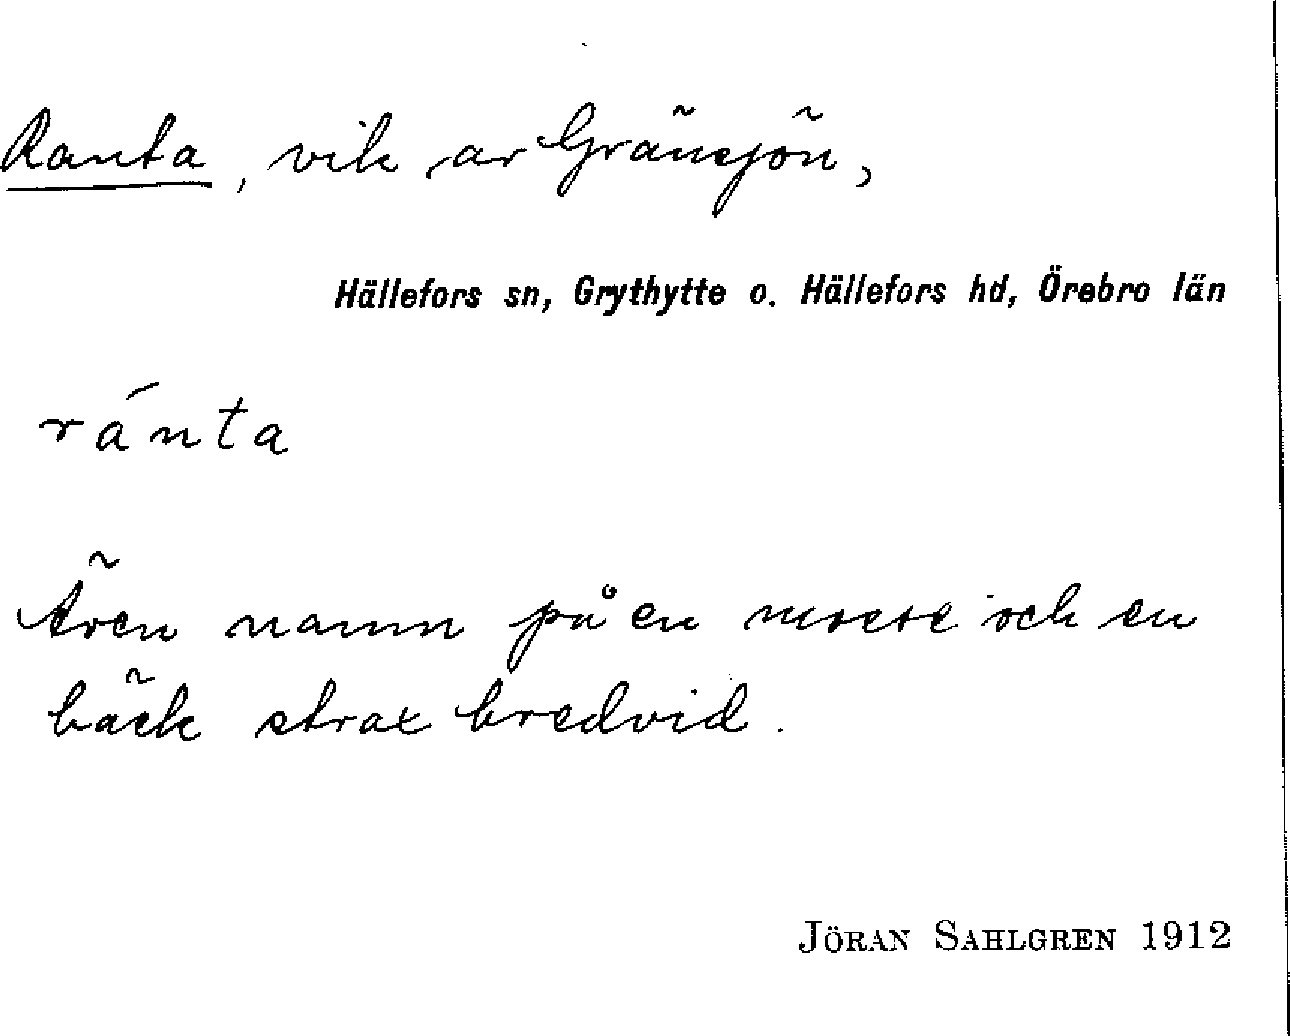 Ranta, vik av Gränsjön,
Hällefors sn, Grythytte o. Hällefors hd, Örebro län
ránta
Även namn på en mosse och en
bäck strax bredvid.
JÖRAN SAHLGREN 1912